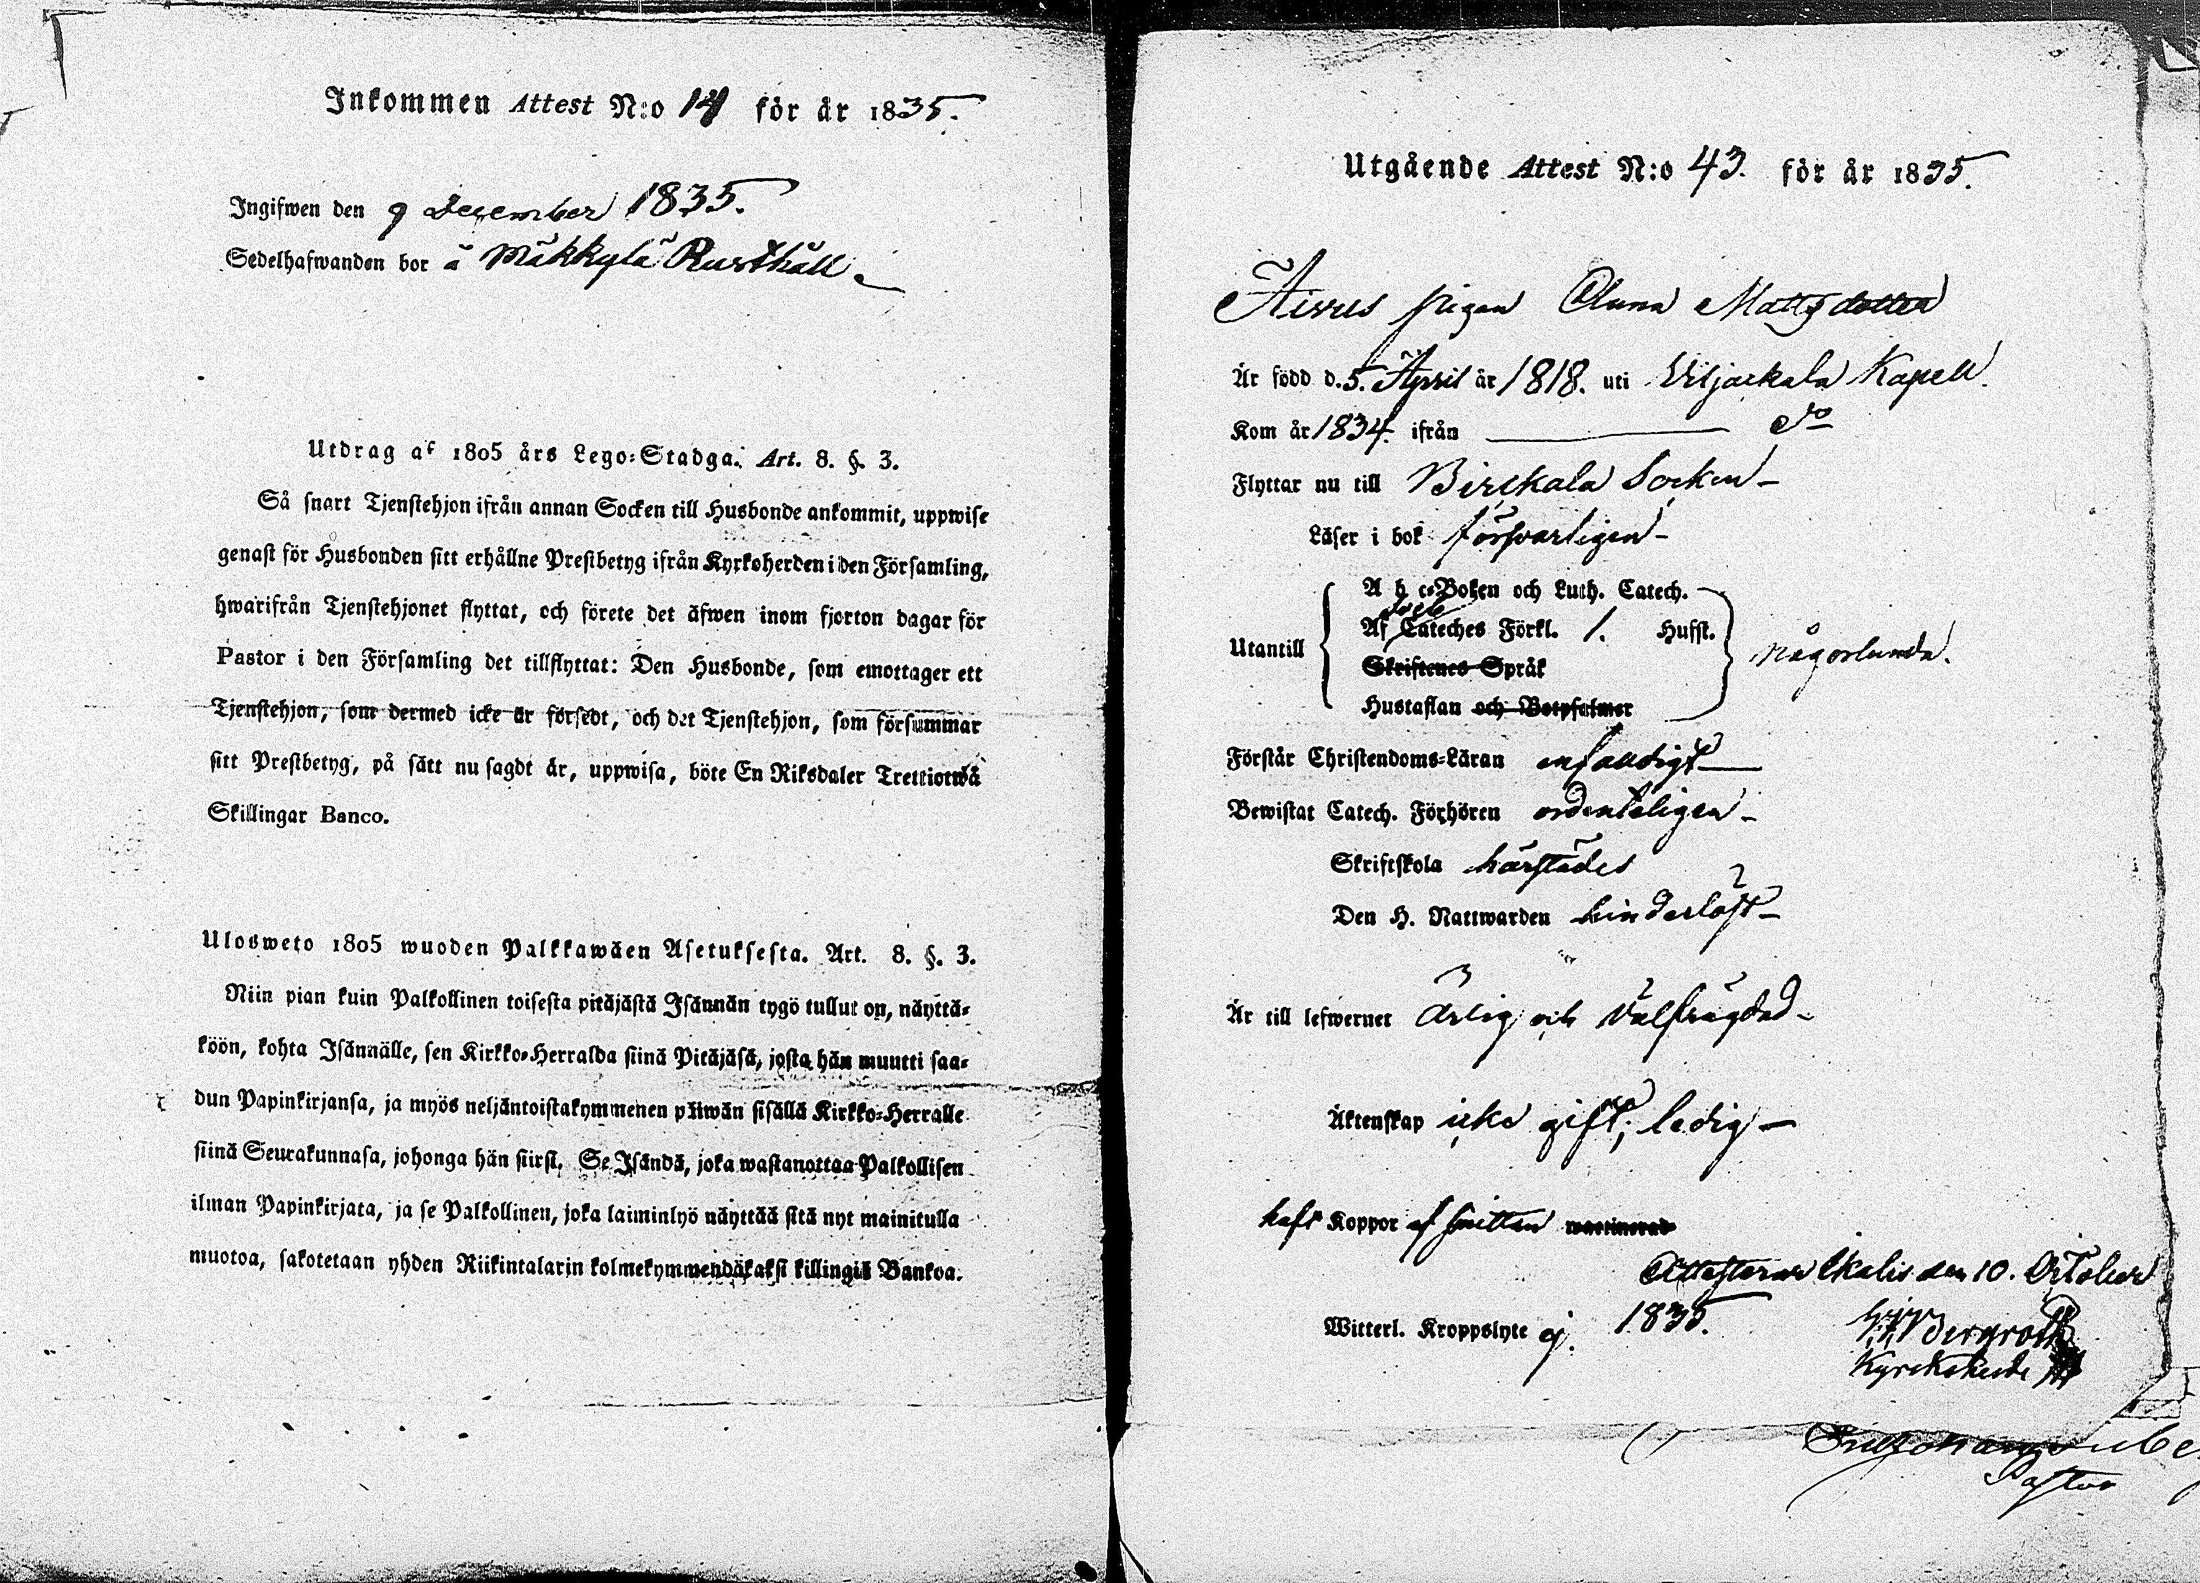 Inkommen Attest N:o 14 för år 1835.
Ingifwen den 9 December 1835.
Sedelhafwanden bor å Mäkkylä Rusthåll
Utdrag af 1805 års Lego-Stadga. Art. 8. §. 3.
Så snart Tjenstehjon ifrån annan Socken till Husbonde ankommit, uppwise
genast för Husbonden sitt erhållne Prestbetyg ifrån Kyrkoherden i den Församling,
hwarifrån Tjenstehjonet flyttat, och förete det äfwen inom fjorton dagar för
Pastor i den Församling det tillflyttat: Den Husbonde, som emottager ett
Tjenstehjon, som dermed icke är försedt, och det Tjenstehjon, som försummar
sitt Prestbetyg, på sätt nu sagdt är, uppwisa, böte En Riksdaler Trettiotwå
Skillingar Banco.
Ulosweto 1805 wuoden Palkkawäen Asetuksesta. Art. 8. §. 3.
Niin pian kuin Palkollinen toisesta pitäjästä Isännän tygö tullut on, näyttä-
köön, kohta Isännälle, sen Kirkko-Herralda siinä Pitäjäsä, josta hän muutti saa-
dun Papinkirjansa, ja myös neljäntoistakymmenen päiwän sisällä Kirkko-Herralle
siinä Seurakunnasa, johonga hän siirsi. Se Isändä, joka wastanottaa Palkollisen
ilman Papinkirjata, ja se Palkollinen, joka laiminlyö näyttää sitä nyt mainitulla
muotoa, sakotetaan yhden Riikintalarin kolmekymmendäkaksi killingiä Bankoa.
Utgående Attest N:o 43. för år 1835.
pigan Anna Mattsdotter
Är född d. 5. April år 1818. uti Viljackala Kapell.
Kom år 1834. ifrån do
Flyttar nu till Birckala Socken
Läser i bok försvarligen
A b c-Boken och Luth. Catech.
Af Cateches Förkl. 1. Hufst.
Utantill någorlunda.
Skriftenes Språk
Hustaflan och Botpsalmer
Förstår Christendoms-Läran enfaldigt
Bewistat Catech. Förhören ordenteligen
Skriftskola härstädes
Den H. Nattwarden hinderlöst
Är till lefwernet Ärlig och Välfrägdad
Äktenskap icke gift; ledig
haft Koppor af smittan waccinerad
Attesterar Ikalis den 10. October
Witterl. Kroppslyte ej. 1835. Bergroth
Kyrckoherde
Pastor